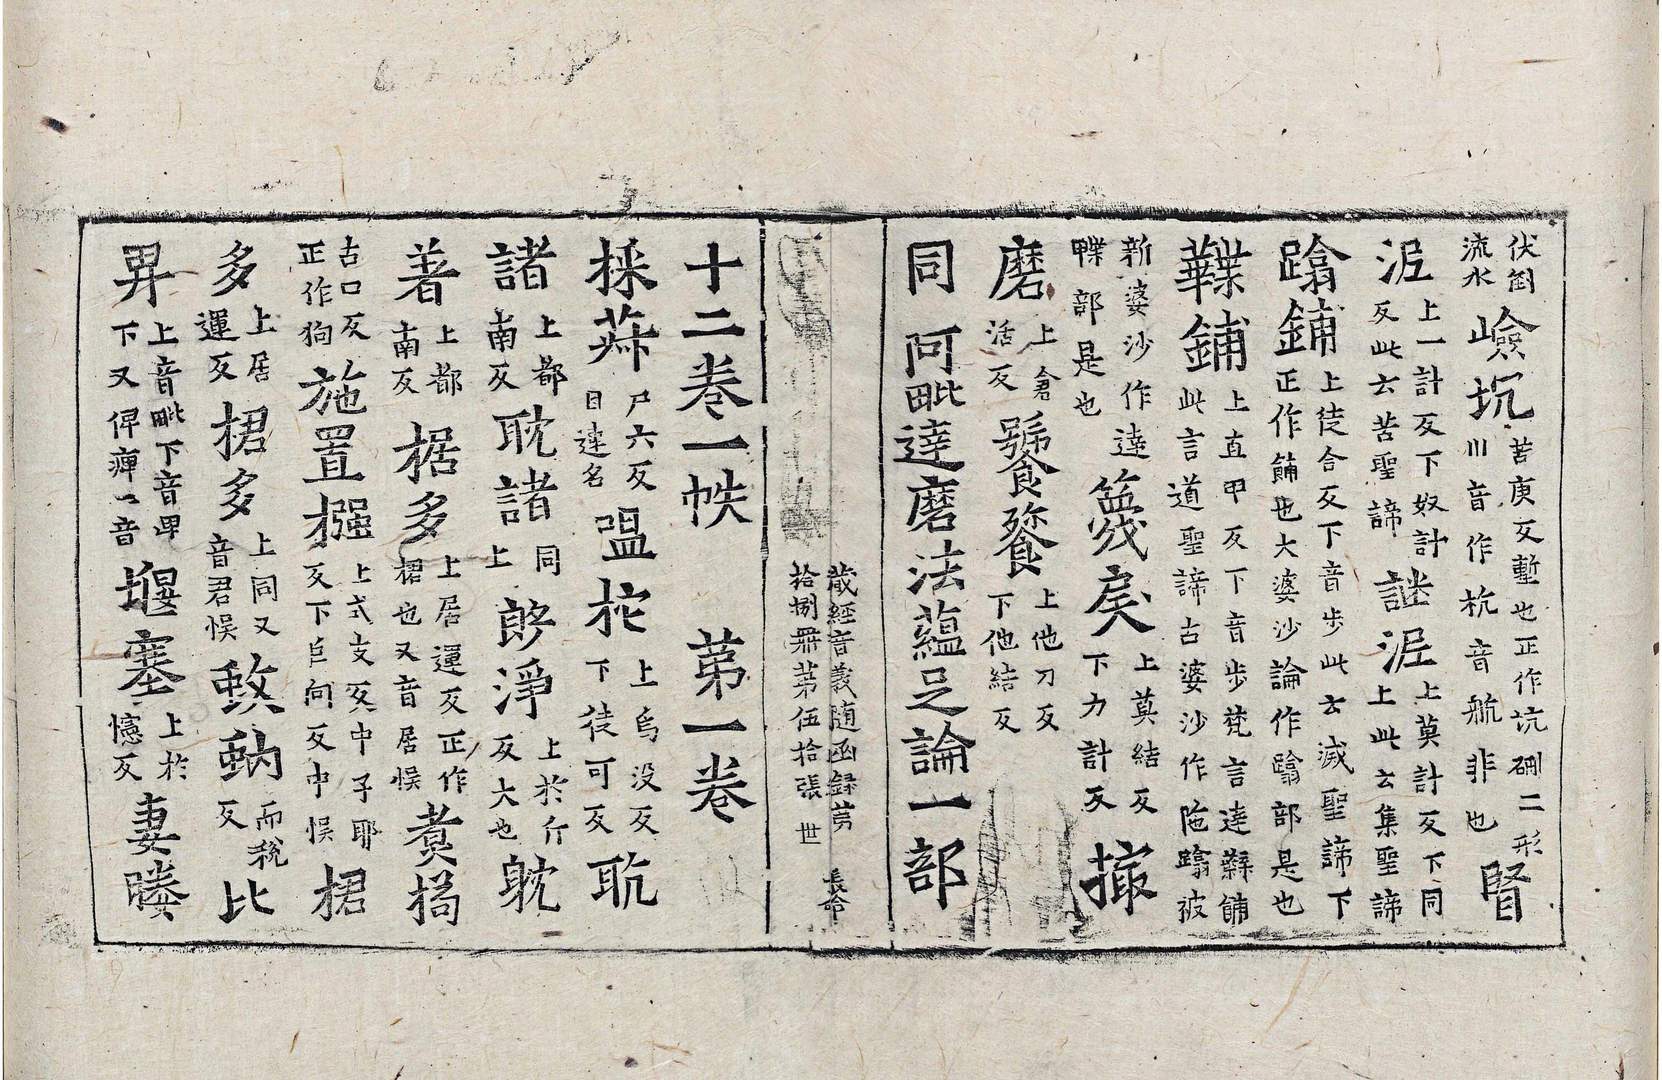 伏劄流水嶮坑苦庚反塹也正作坑硎二形川音作杭音航非也䝨
泥上一計反下奴計反此云苦聖諦謎泥上莫計反下同上此云集聖諦
蹹鋪上徒合反下音步此云滅聖諦下正作餔也大婆沙論作蹹部是也
鞢鋪上直甲反下音步梵言達鞢餔此言道聖諦古婆沙作陁蹹被
新婆沙作達鞢部是也篾戾上莫結反下力計反撮
磨上倉活反饕餮上他刀反下他結反
同阿毗達磨法蘊足論一部
藏經音義随函録第拾捌冊第伍拾張 世
十二卷一帙 第一卷
採菽尸六反目連名嗢柁上烏没反下徒可反耽
諸上都南反耽諸同上 淨上於斤反大也躭
著上都南反椐多上居運反正作桾也又音居悮 橘
古口反正作狗施置摾上式支反中子耶反下巨向反中悮桾
多上居運反桾多上同又音君悮 蚋而稅反比
畀上音毗下音畀下又俾痺二音堰塞上於憶反妻